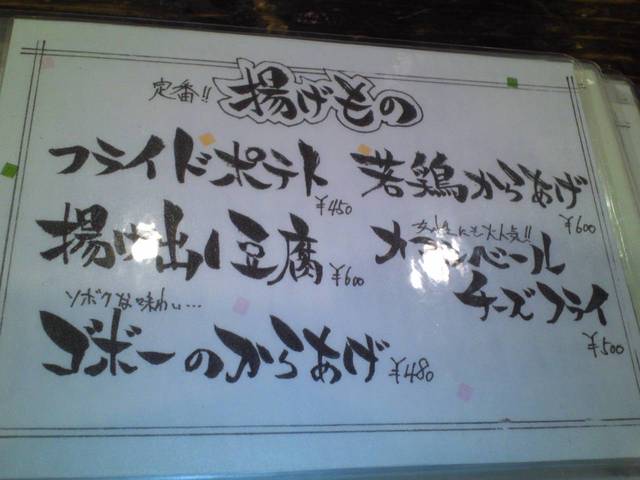 定番!! 揚げもの
フライドポテト
¥450
若鶏からあげ
¥600
揚げ出し豆腐
¥600
女性にも大人気!!
カマンベール
チーズフライ
¥500
ソボクな味わい…
ゴボーのからあげ
¥480